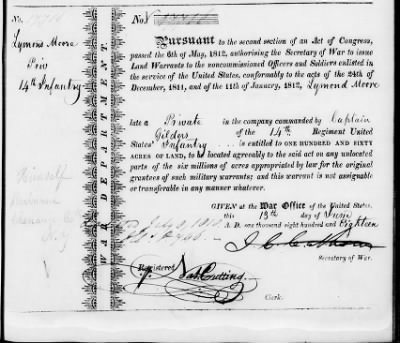 No.
Lymond Moore
Priv
14th Infantry
Himself
WAR DEPARTMENT.
No.
Pursuant to the second section of an Act of Congress,
passed the 6th of May, 1812, authorising the Secretary of War to issue
Land Warrants to the noncommissioned Officers and Soldiers enlisted in
the service of the United States, conformably to the acts of the 24th
December, 1811, and of the 11th of January, 1812, Lymond Moore
late a Private in the company commanded by Captain
Gilders of the 14th Regiment United
States' Infantry is entitled to ONE HUNDRED AND SIXTY
ACRES OF LAND, to be located agreeably to the said act on any unlocated
parts of the six millions of acres appropriated by law for the original
grantees of such military warrants; and this warrant is not assignable
or transferable in any manner whatever.
GIVEN at the War Office of the United States,
this 13th day of June
A. D. one thousand eight hundred and Eighteen
J C Calhoun
Secretary of War.
Registered Nat Cutting
Clerk.